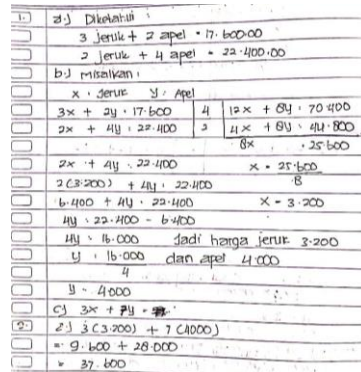 1. a.) Diketahui :
3 jeruk + 2 apel = 17.600.00
2 jeruk + 4 apel = 22.400.00
b.) misalkan :
x = jeruk y = Apel
3x + 2y = 17.600 | 4 | 12x + 8y = 70.400
2x + 4y = 22.400 | 2 | 4x + 8y = 44.800
8x = 25.600
2x + 4y = 22.400 x = 25.600
2(3.200) + 4y = 22.400 8
6.400 + 4y = 22.400 x = 3.200
4y = 22.400 - 6.400
4y = 16.000 Jadi harga jeruk 3.200
y = 16.000 dan apel 4.000
4
y = 4.000
c) 3x + 7y =
2. 2.) 3(3.200) + 7(4000)
= 9.600 + 28.000
= 37.600